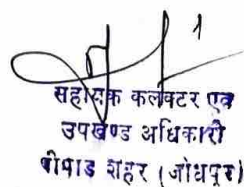 सहायक कलेक्टर एवं
उपखण्ड अधिकारी
पीपाड़ शहर (जोधपुर)